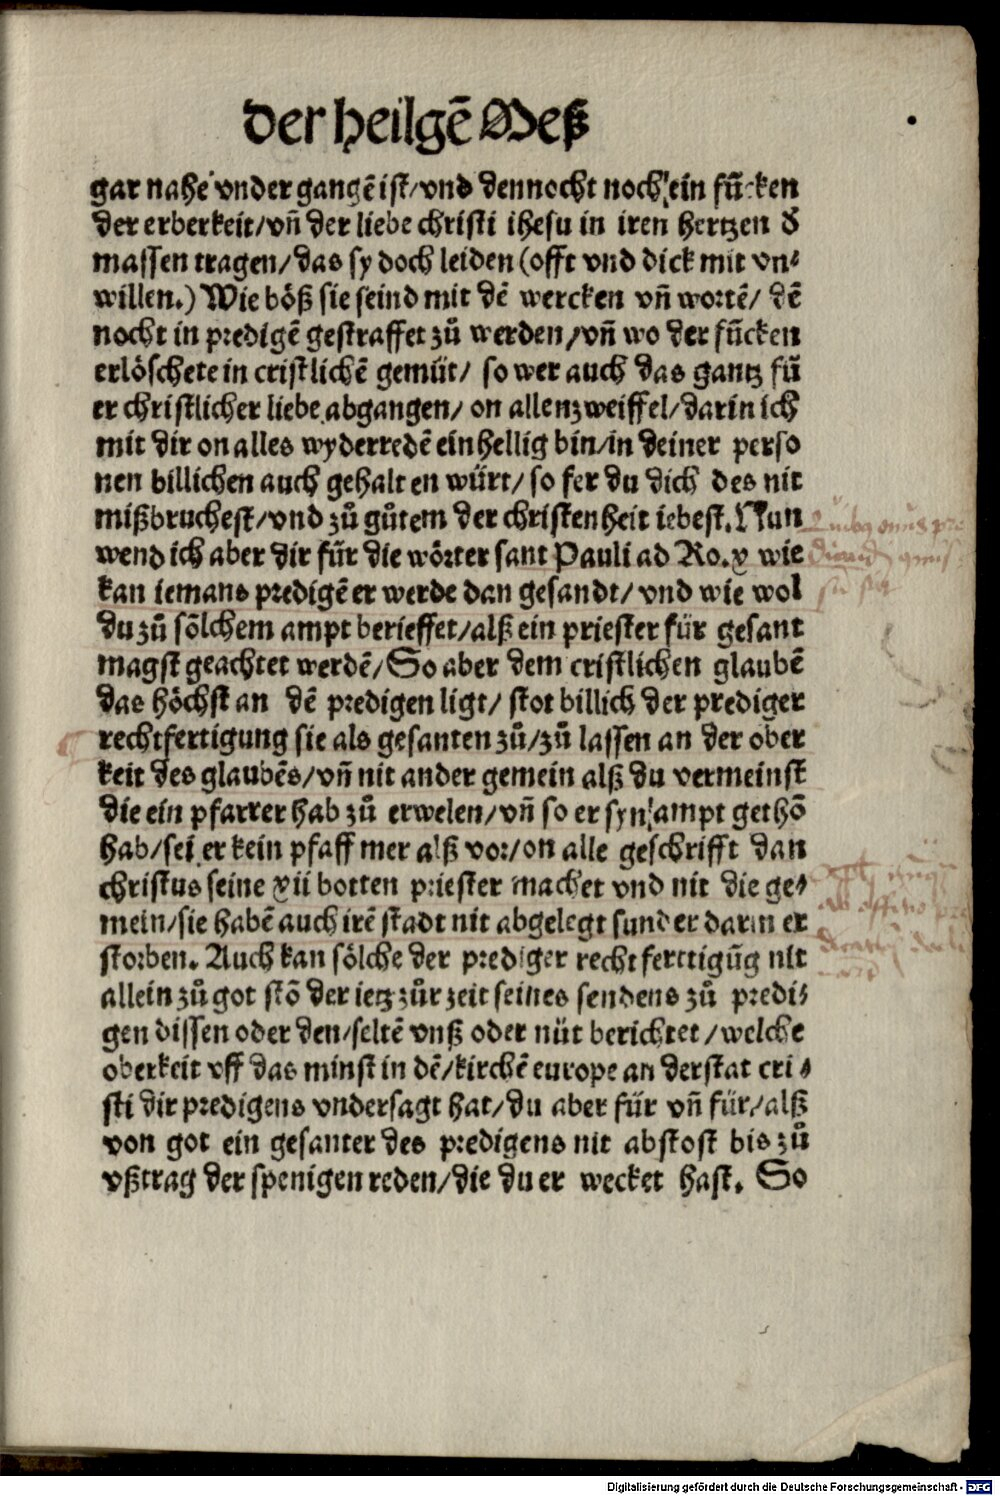 der heilgē Meß
gar nahe vnder gangē ist/vnd dennocht noch ein fūcken
der erberkeit/vñ der liebe christi ihesu in iren hertzen d̕
massen tragen/das sy doch leiden (offt vnd dick mit vn⸗
willen.) Wie böß sie seind mit dē wercken vñ wortē/ dē
nocht in predigē gestraffet zů werden/vñ wo der fūcken
erlöschete in cristlichē gemüt/ so wer auch das gantz fü
er christlicher liebe abgangen/ on allen zweiffel/darin ich
mit dir on alles wyderredē einhellig bin/in deiner perso
nen billichen auch gehalt en würt/ so fer du dich des nit
mißbruchest/vnd zů gůtem der christenheit iebest. Nun
wend ich aber dir für die wörter sant Pauli ad Ro.x wie
kan iemans predigē er werde dan gesandt/ vnd wie wol
du zů sölchem ampt berieffet/alß ein priester für gesant
magst geachtet werdē/ So aber dem cristlichen glaubē
das höchst an dē predigen ligt/ stot billich der prediger
rechtfertigung sie als gesanten zů/zů lassen an der ober
keit des glaubēs/vñ nit ander gemein alß du vermeinst
die ein pfarrer hab zů erwelen/vñ so er syn ampt gethō
hab/sei er kein pfaff mer alß vor/on alle geschrifft dan
christus seine xii botten priester machet vnd nit die ge⸗
mein/sie habē auch irē stadt nit abgelegt sunder darin er
storben. Auch kan sölche der prediger rechtferttigūg nit
allein zů got stō der ietz zůr zeit seines sendens zů predi⸗
gen dissen oder den/seltē vnß oder nüt berichtet/welche
oberkeit vff das minst in dē/kirchē europe an derstat cri⸗
sti dir predigens vndersagt hat/du aber für vñ für/alß
von got ein gesanter des predigens nit abstost bis zů
vßtrag der spenigen reden/die du er wecket hast. So
Digitalisierung gefördert durch die Deutsche Forschungsgemeinschaft - DFG